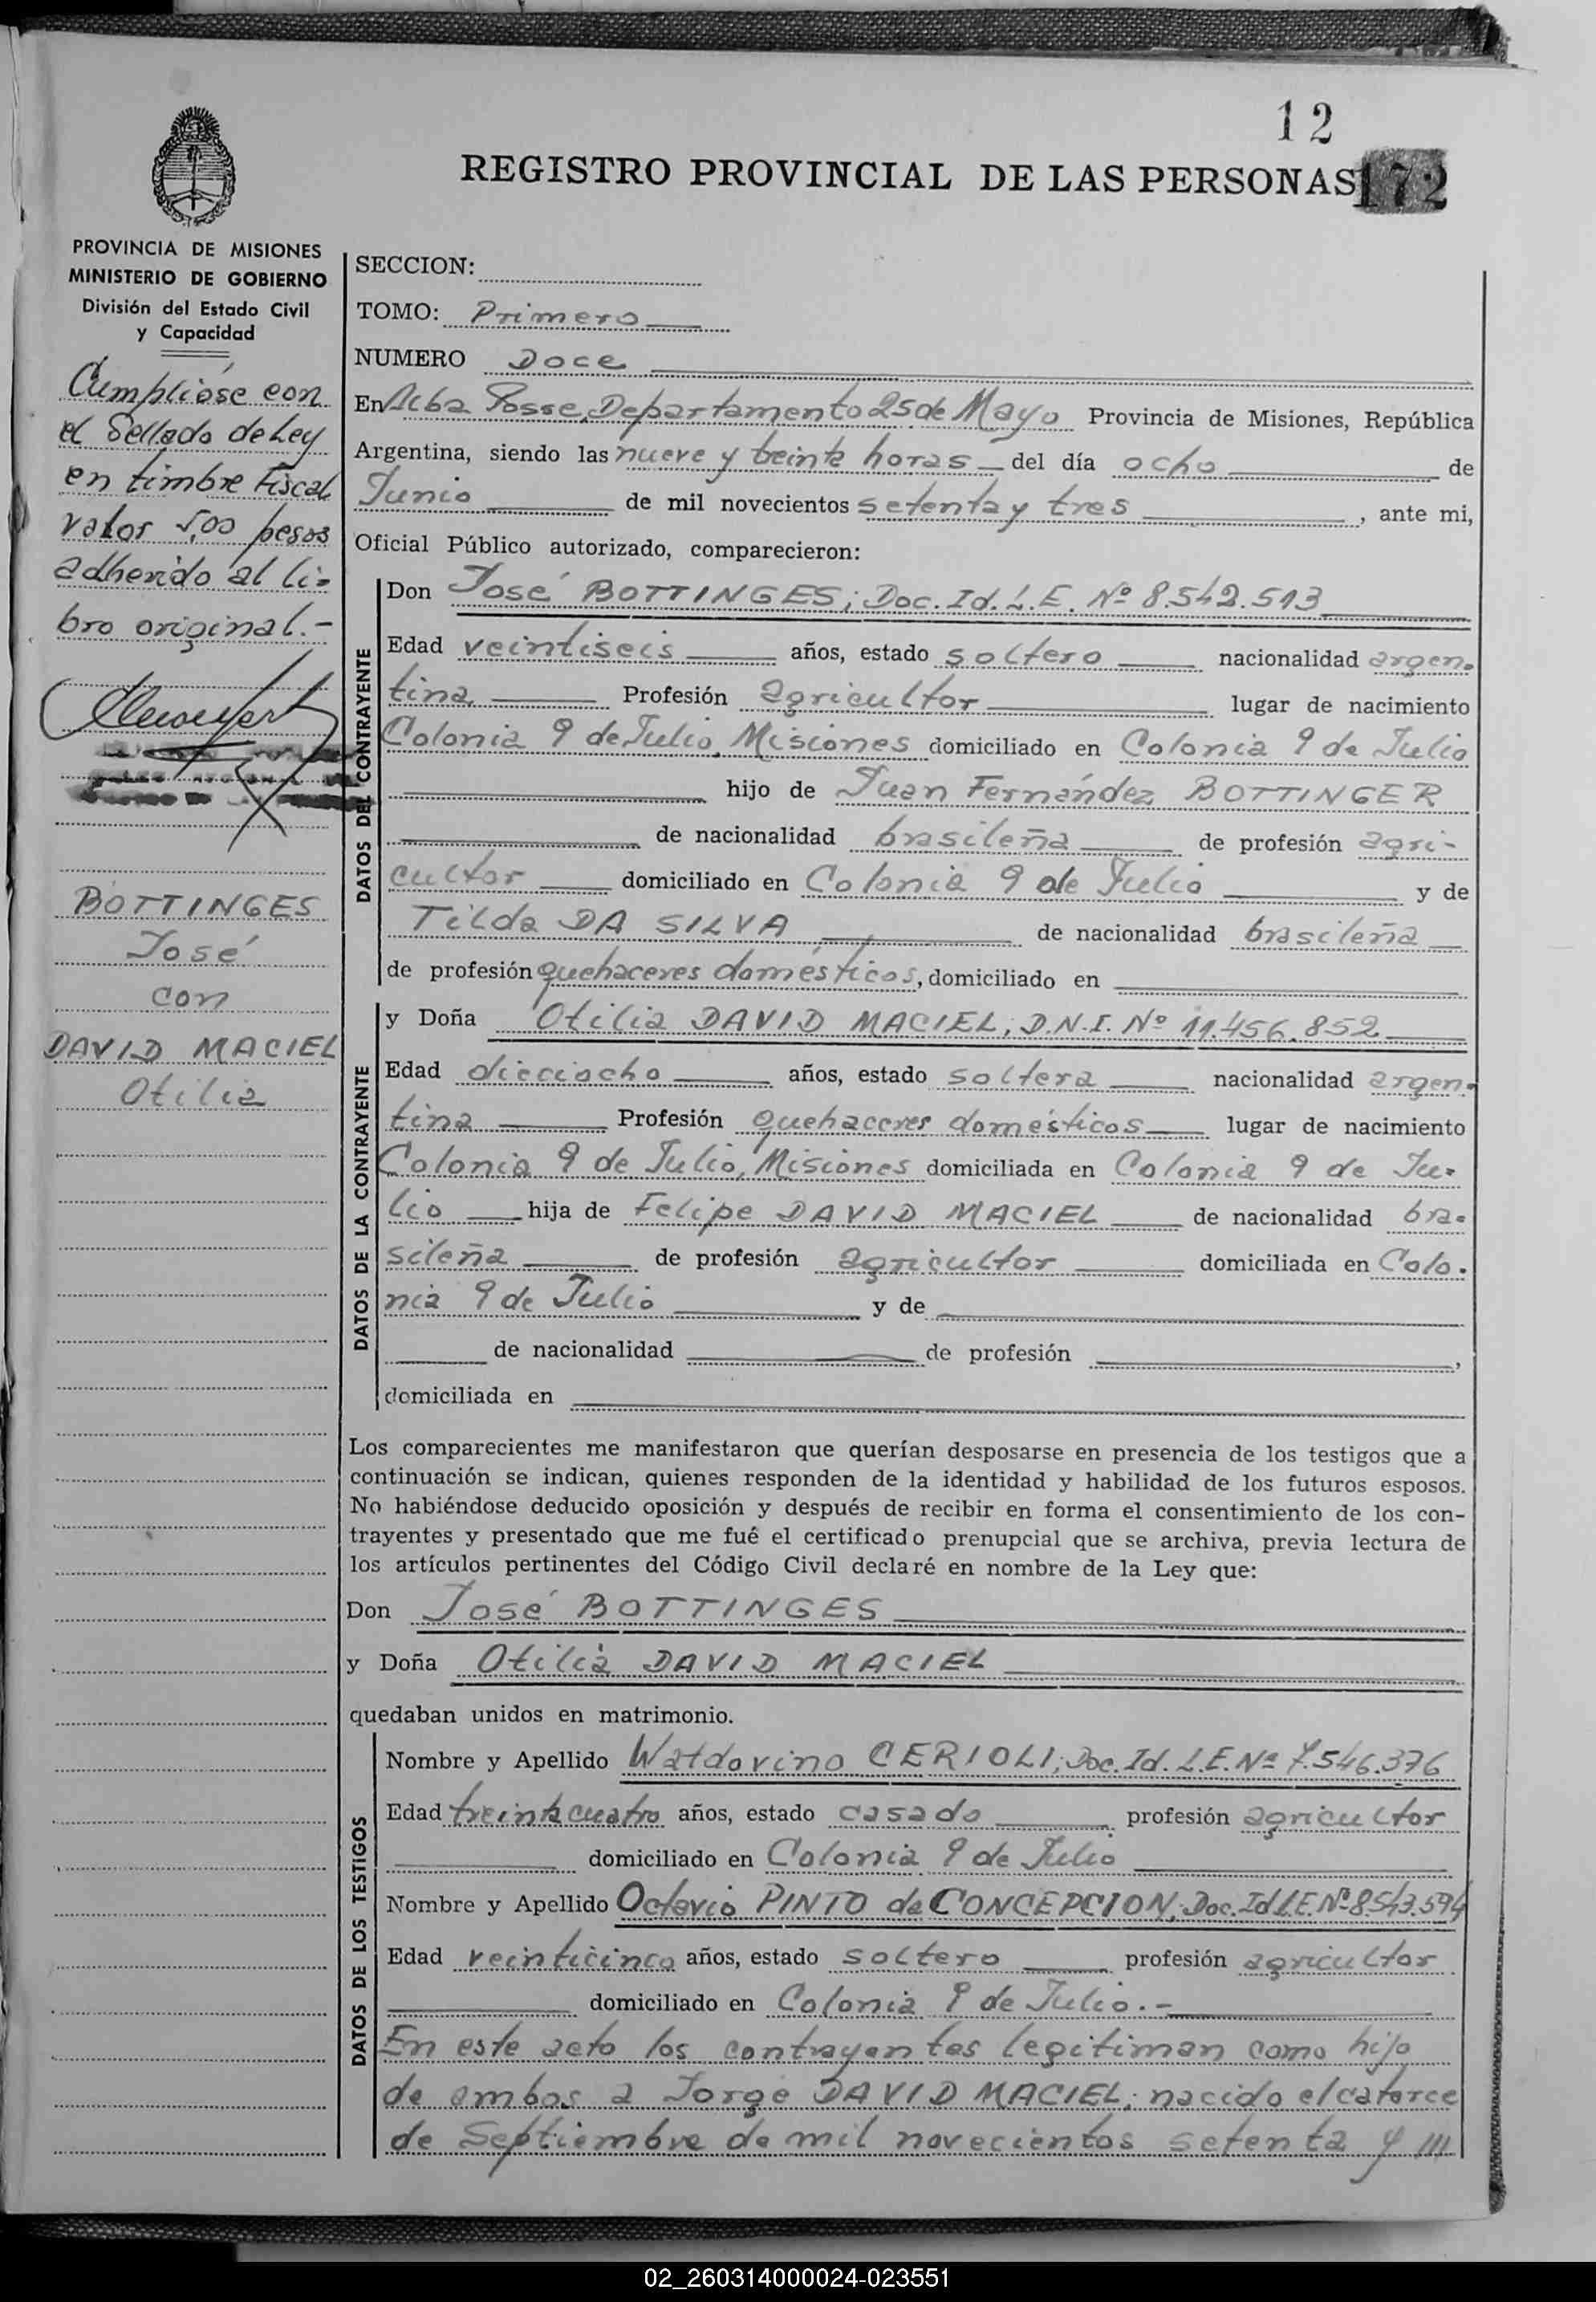 12
REGISTRO PROVINCIAL DE LAS PERSONAS 172
PROVINCIA DE MISIONES
MINISTERIO DE GOBIERNO
División del Estado Civil
y Capacidad
Cumplióse con
el Sellado de Ley
en timbre Fiscal
valor 5,00 pesos
adherido al li-
bro original.-
BOTTINGES
José
con
DAVID MACIEL
Otilia
SECCION:
TOMO: Primero
NUMERO Doce
En Alba Posse, Departamento 25 de Mayo Provincia de Misiones, República
Argentina, siendo las nueve y treinta horas del día ocho de
Junio de mil novecientos setenta y tres, ante mi,
Oficial Público autorizado, comparecieron:
DATOS DEL CONTRAYENTE
Don José BOTTINGES; Doc. Id. L.E. Nº 8.542.513
Edad veintiseis años, estado soltero nacionalidad argen-
tina Profesión agricultor lugar de nacimiento
Colonia 9 de Julio, Misiones domiciliado en Colonia 9 de Julio
hijo de Juan Fernández BOTTINGER
de nacionalidad brasileña de profesión agri-
cultor domiciliado en Colonia 9 de Julio y de
Tilda DA SILVA de nacionalidad brasileña
de profesión quehaceres domésticos, domiciliado en
DATOS DE LA CONTRAYENTE
y Doña Otilia DAVID MACIEL; D.N.I. Nº 11.456.852
Edad dieciocho años, estado soltera nacionalidad argen-
tina Profesión quehaceres domésticos lugar de nacimiento
Colonia 9 de Julio, Misiones domiciliada en Colonia 9 de Ju-
lio hija de Felipe DAVID MACIEL de nacionalidad bra-
sileña de profesión agricultor domiciliada en Colo-
nia 9 de Julio y de
de nacionalidad de profesión ,
domiciliada en
Los comparecientes me manifestaron que querían desposarse en presencia de los testigos que a
continuación se indican, quienes responden de la identidad y habilidad de los futuros esposos.
No habiéndose deducido oposición y después de recibir en forma el consentimiento de los con-
trayentes y presentado que me fué el certificado prenupcial que se archiva, previa lectura de
los artículos pertinentes del Código Civil declaré en nombre de la Ley que:
Don José BOTTINGES
y Doña Otilia DAVID MACIEL
quedaban unidos en matrimonio.
DATOS DE LOS TESTIGOS
Nombre y Apellido Waldovino CERIOLI; Doc. Id. L.E. Nº 7.546.376
Edad treinta cuatro años, estado casado profesión agricultor
domiciliado en Colonia 9 de Julio
Nombre y Apellido Octavio PINTO de CONCEPCION; Doc. Id L.E. Nº 8.543.594
Edad veinticinco años, estado soltero profesión agricultor
domiciliado en Colonia 9 de Julio.-
En este acto los contrayentes legitiman como hijo
de ambos a Jorge DAVID MACIEL; nacido el catorce
de Septiembre de mil novecientos setenta y ///
02_260314000024-023551